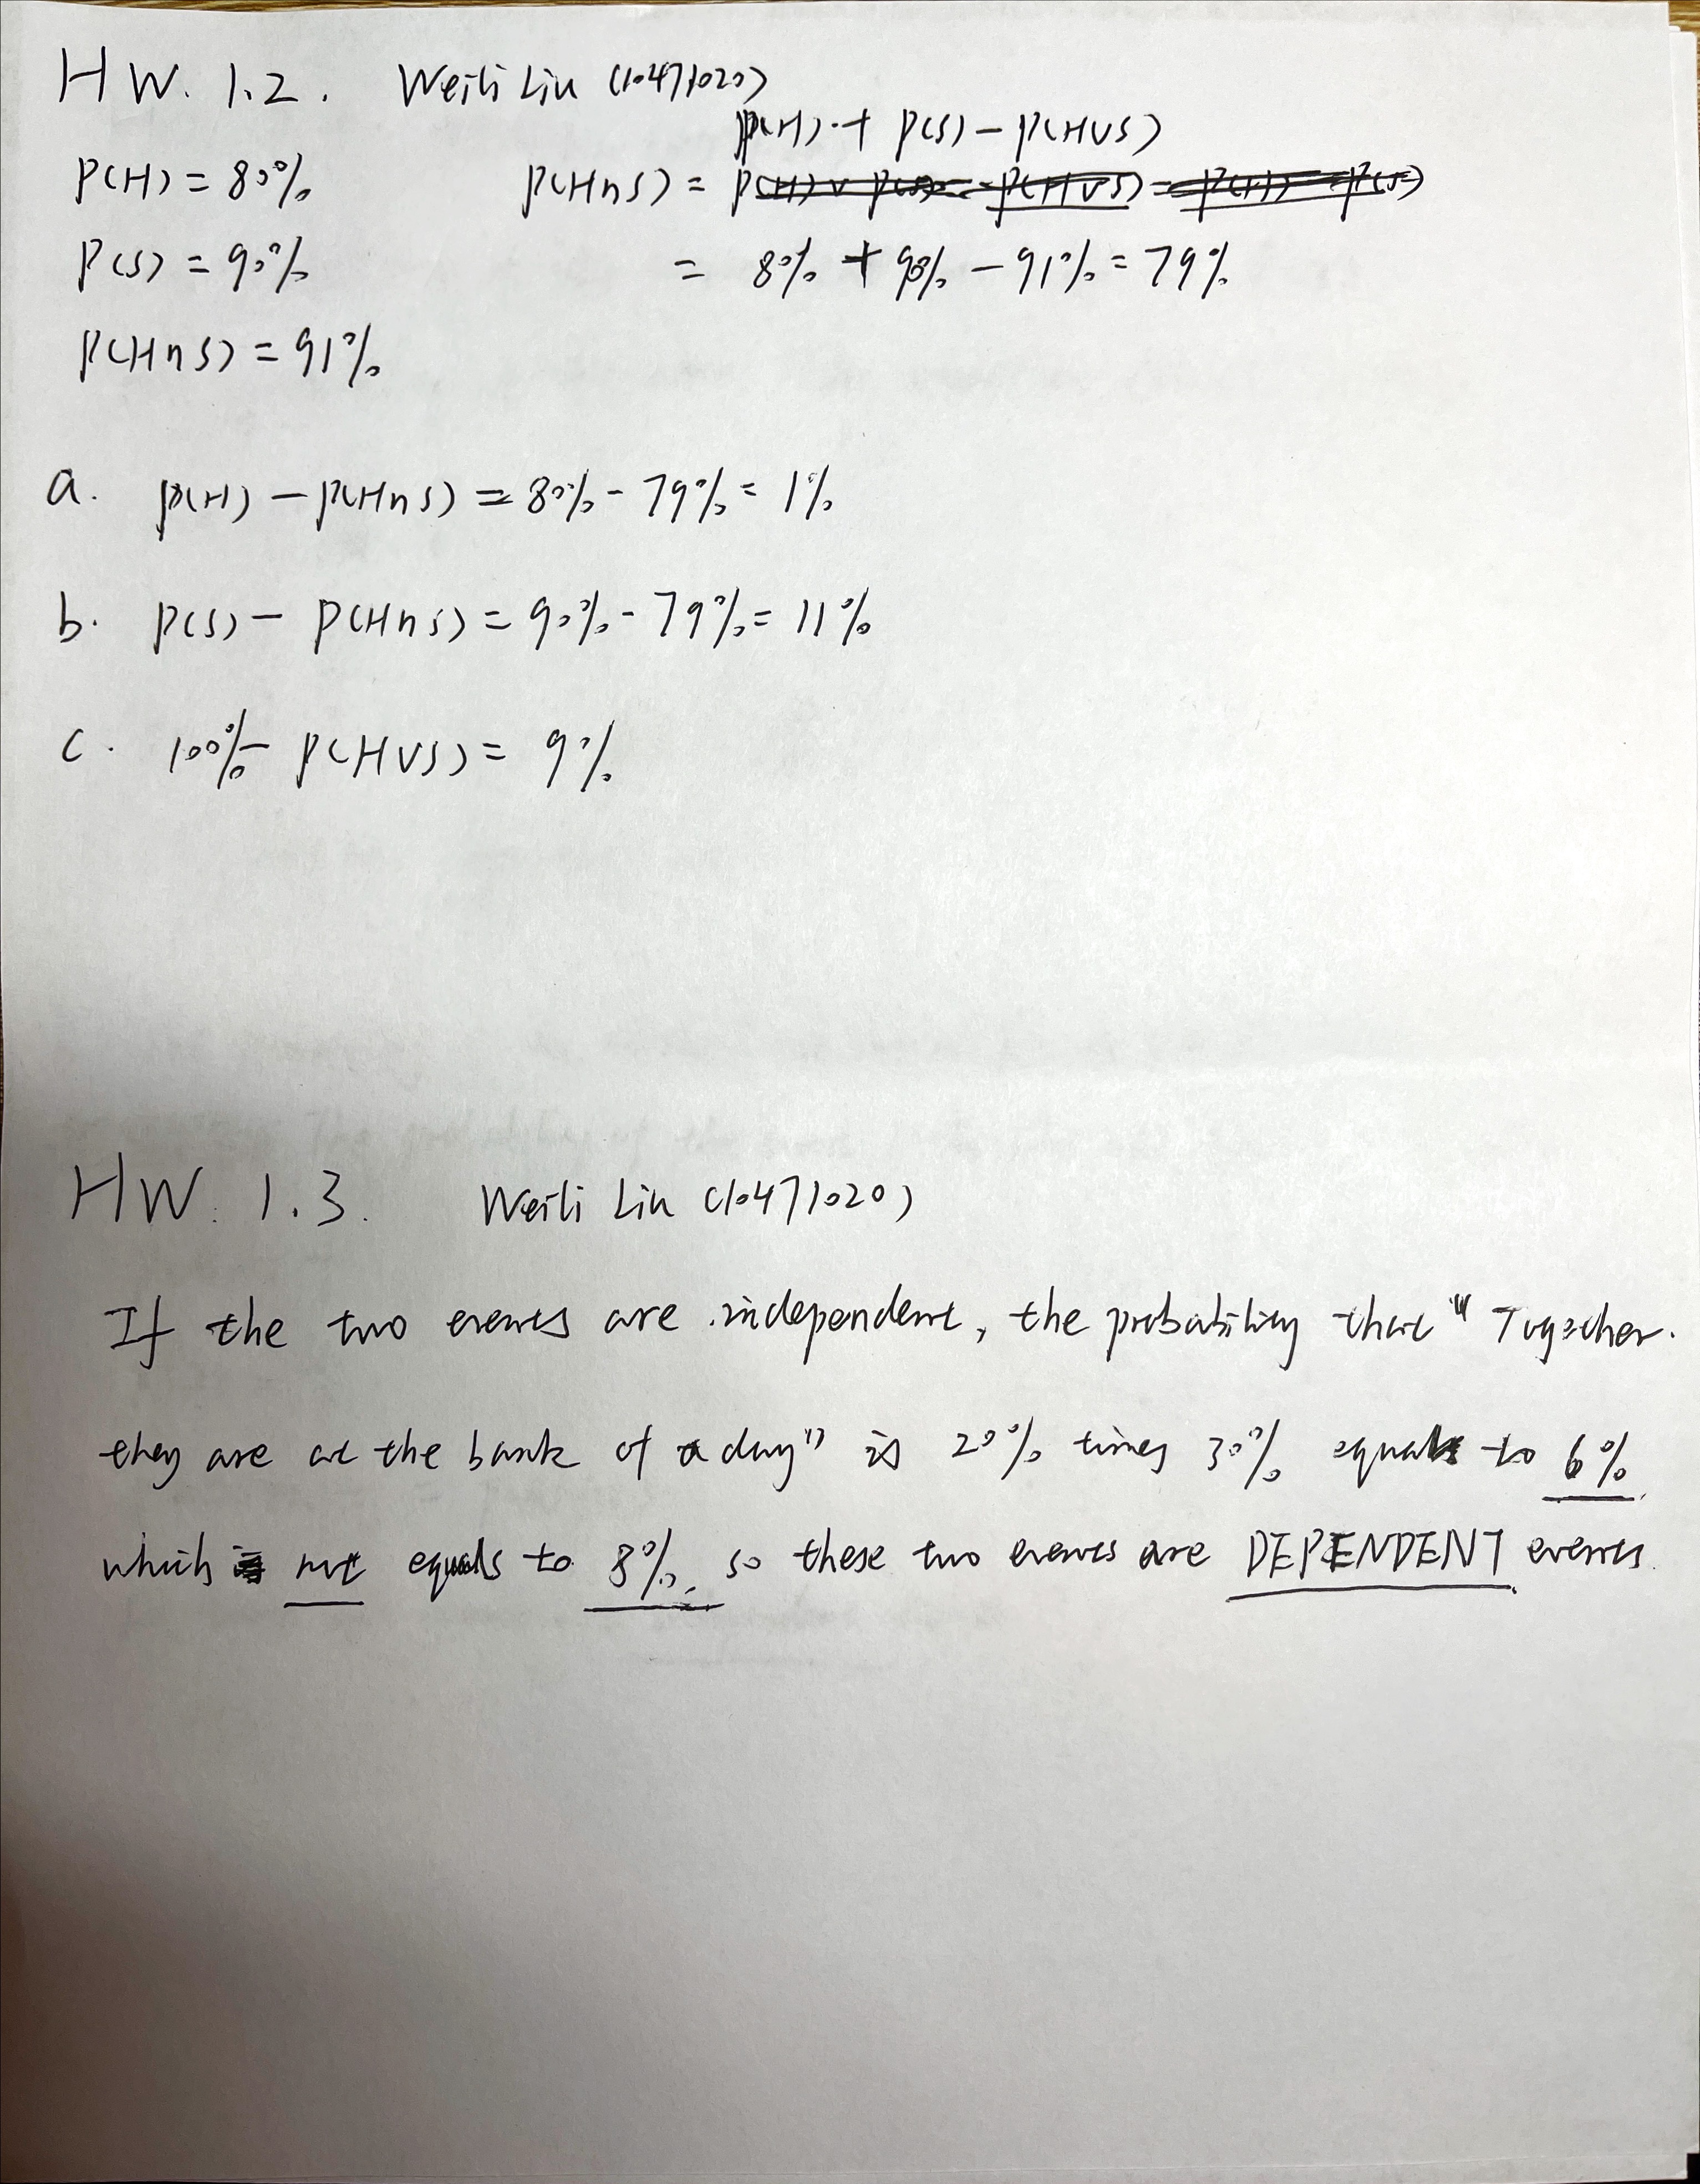 HW. 1.2. Weili Liu (10471020)
P(H) + P(S) - P(H∪S)
P(H) = 80% P(H∩S) =
P(S) = 90% = 80% + 90% - 91% = 79%
P(H∩S) = 91%
a. P(H) - P(H∩S) = 80% - 79% = 1%
b. P(S) - P(H∩S) = 90% - 79% = 11%
c. 100% - P(H∪S) = 9%
HW. 1.3. Weili Liu (10471020)
If the two events are independent, the probability that "Together
they are at the bank of a day" is 20% times 30% equals to 6%
which not equals to 8%, so these two events are DEPENDENT events.